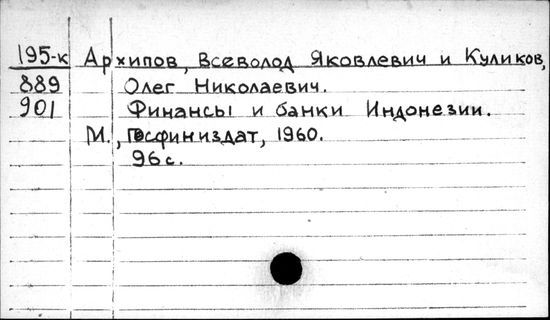 195-к Архипов, Всеволод Яковлевич и Куликов,
889 Олег Николаевич.
901 Финансы и банки Индонезии.
М., Госфиниздат, 1960.
96 с.